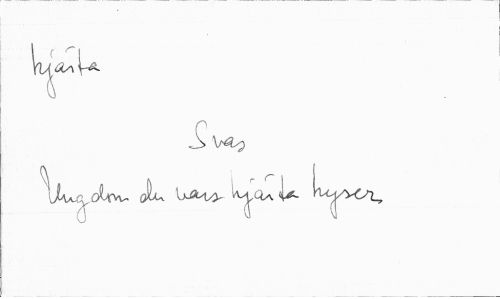 hjärta
Svas
Ungdom du vars hjärta hyser